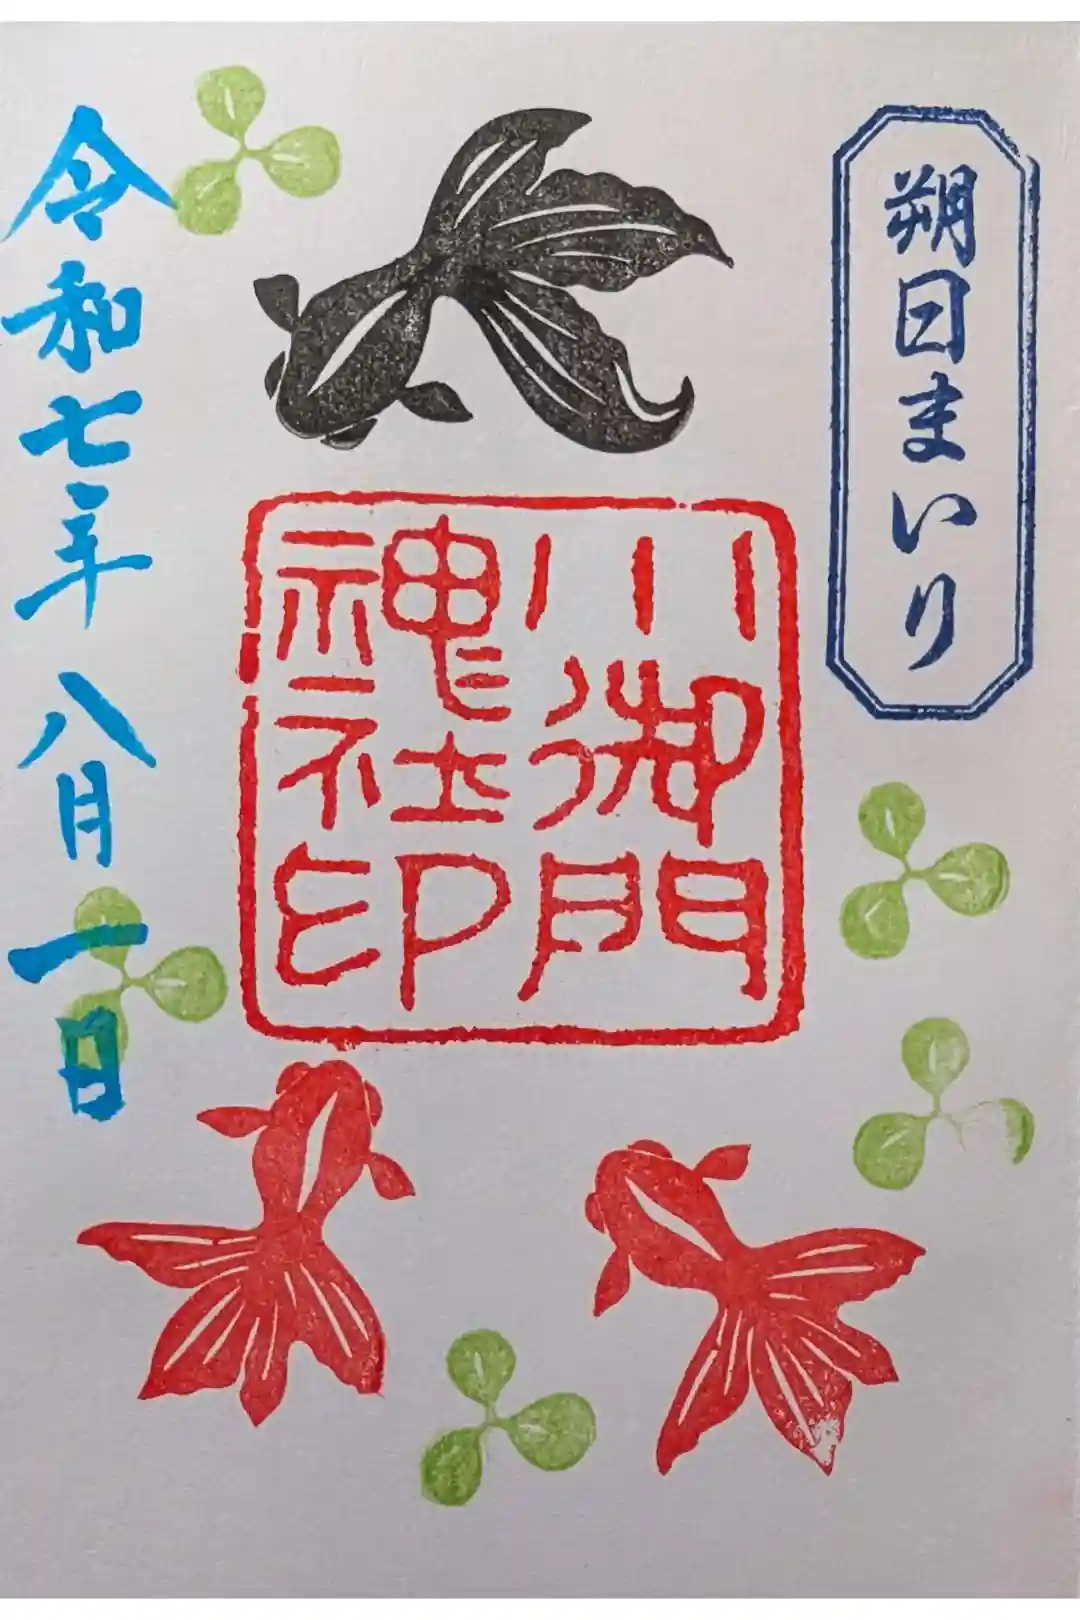 朔日まいり
小御門
神社印
令和七年八月一日